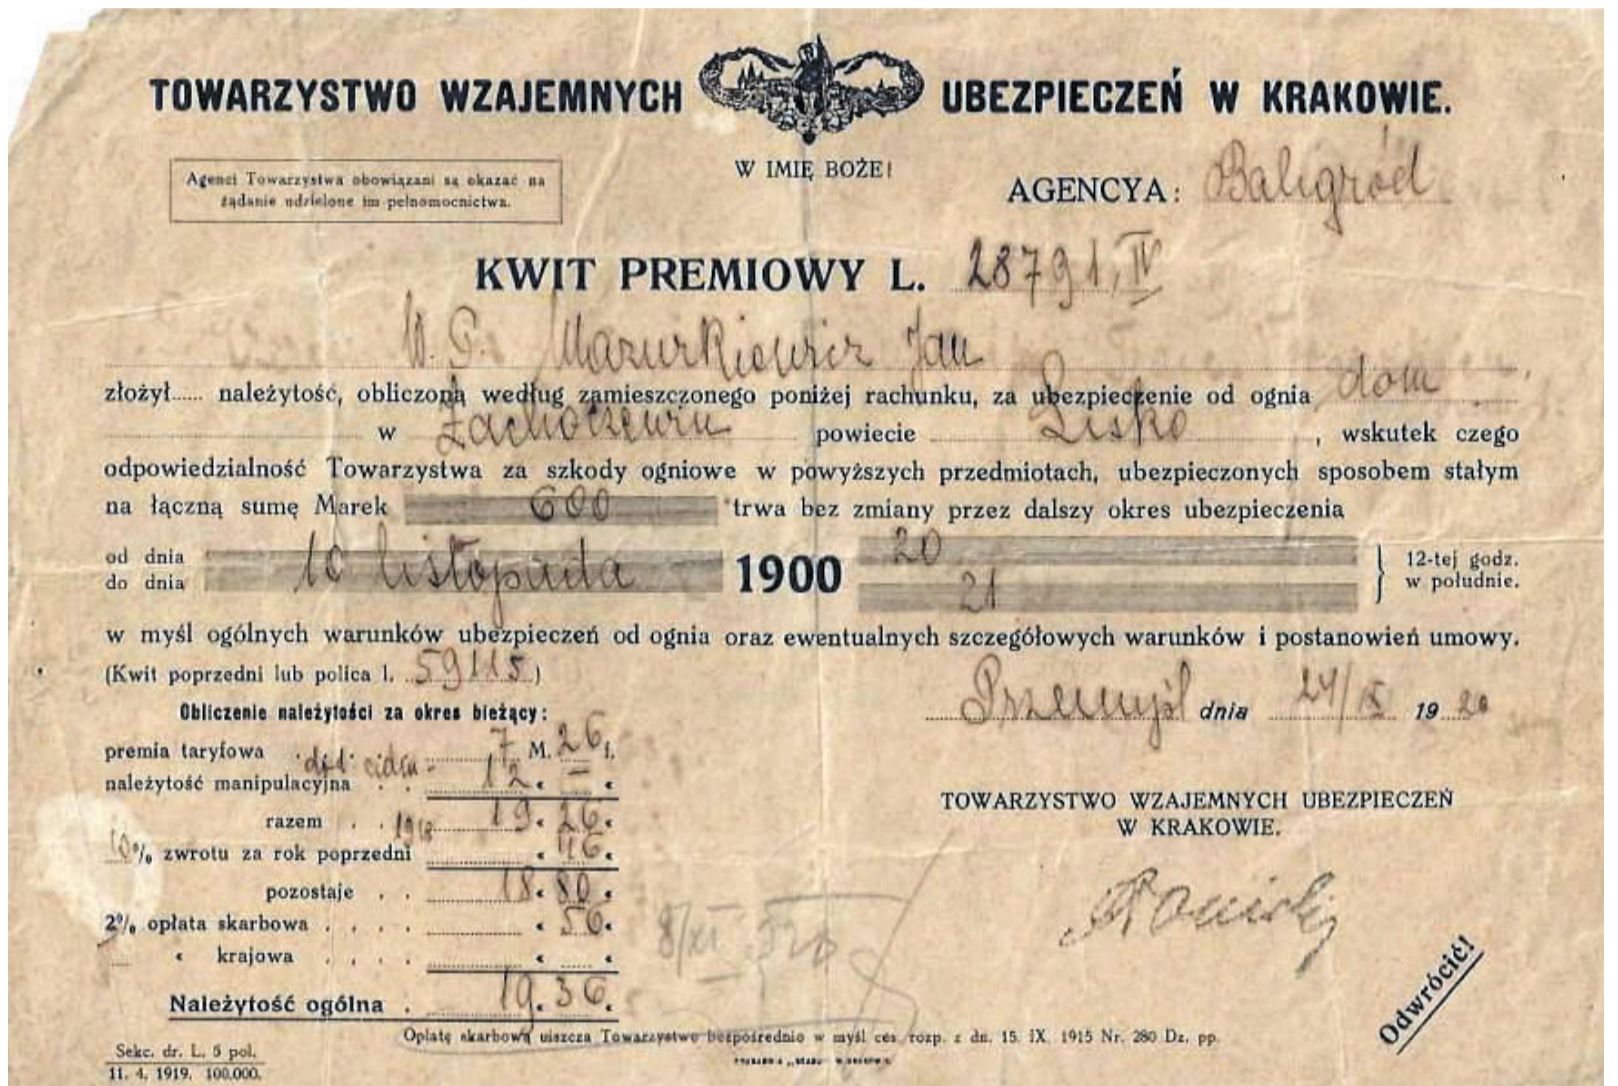 TOWARZYSTWO WZAJEMNYCH UBEZPIECZEŃ W KRAKOWIE.
W IMIĘ BOŻE!
Agenci Towarzystwa obowiązani są okazać na
żądanie udzielone im pełnomocnictwa.
AGENCYA: Baligród
KWIT PREMIOWY L. 28791, IV
W. P. Mazurkiewicz Jan
złożył...... należytość, obliczoną według zamieszczonego poniżej rachunku, za ubezpieczenie od ognia dom
w Zachoczewiu powiecie Lisko, wskutek czego
odpowiedzialność Towarzystwa za szkody ogniowe w powyższych przedmiotach, ubezpieczonych sposobem stałym
na łączną sumę Marek 600 trwa bez zmiany przez dalszy okres ubezpieczenia
od dnia
do dnia 10 listopada 1900 20
21
12-tej godz.
w południe.
w myśl ogólnych warunków ubezpieczeń od ognia oraz ewentualnych szczegółowych warunków i postanowień umowy.
(Kwit poprzedni lub polica l. 59115)
Przemyśl dnia 24/IX 1920
Obliczenie należytości za okres bieżący:
premia taryfowa . 7 M. 26 f.
należytość manipulacyjna . . 12 « — «
razem . . 1918 19 « 26 «
10% zwrotu za rok poprzedni « 46 «
pozostaje . . 18 « 80 «
2% opłata skarbowa . . . . « 56 «
« krajowa . . . . « «
Należytość ogólna . 19 « 36 «
TOWARZYSTWO WZAJEMNYCH UBEZPIECZEŃ
W KRAKOWIE.
8/XI
Odwrócić!
Opłatę skarbową uiszcza Towarzystwo bezpośrednio w myśl ces. rozp. z dn. 15. IX. 1915 Nr. 280 Dz. pp.
Sekc. dr. L. 5 pol.
11. 4. 1919. 100.000.